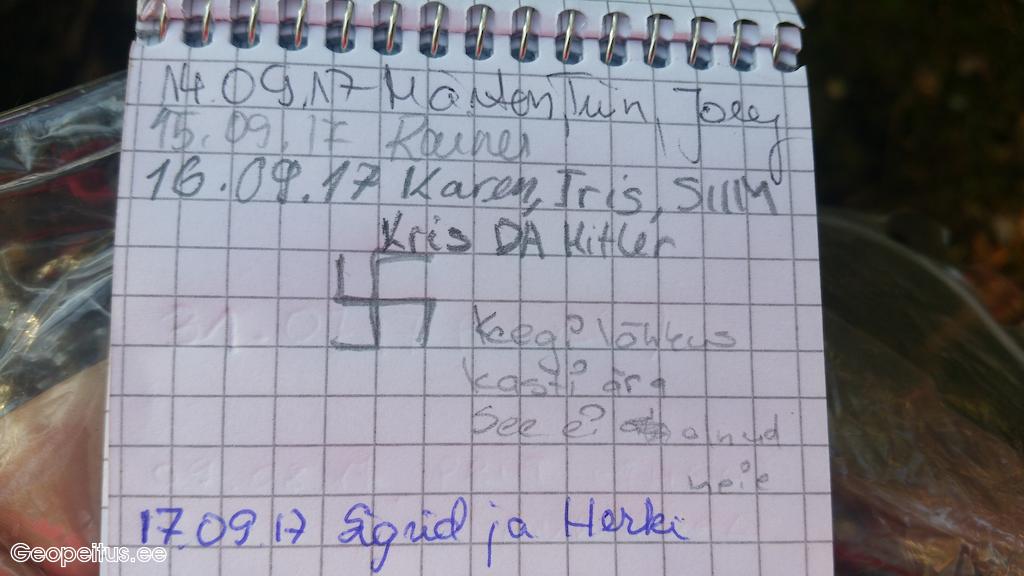 14.09.17 Mårten, Truin, Joeg
15.09.17 Rainer
16.09.17 Karen, Iris, SIIIM
Kris DA Hitler
Keegi lõhkus
kasti ära
See ei olnud
meie
17.09.17 Sigrid ja Herki
Geopeitus.ee